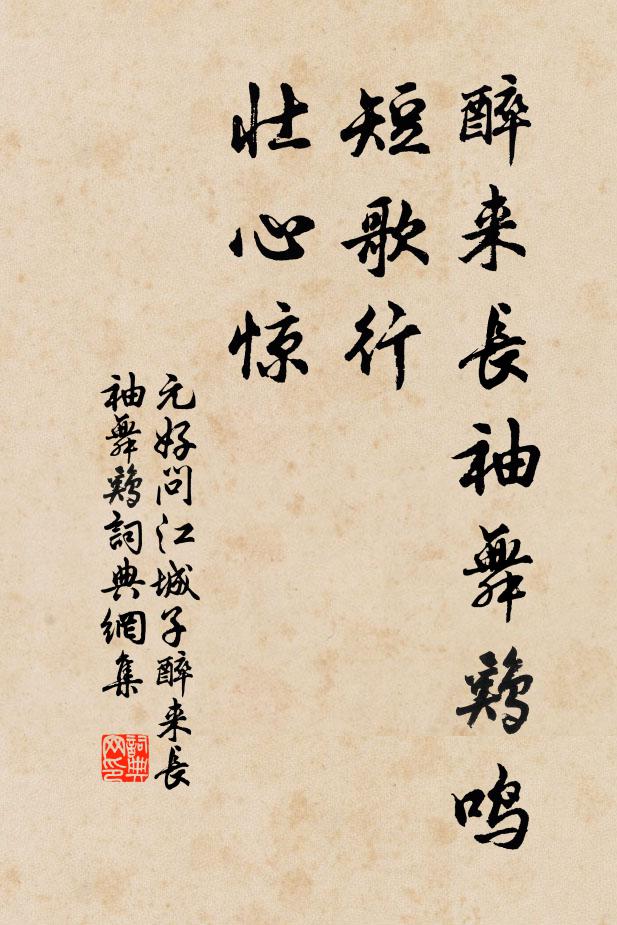 醉来長袖舞鷄鳴
短歌行
壮心惊
元好问江城子醉来長
袖舞鷄詞典網集
詞典
网印